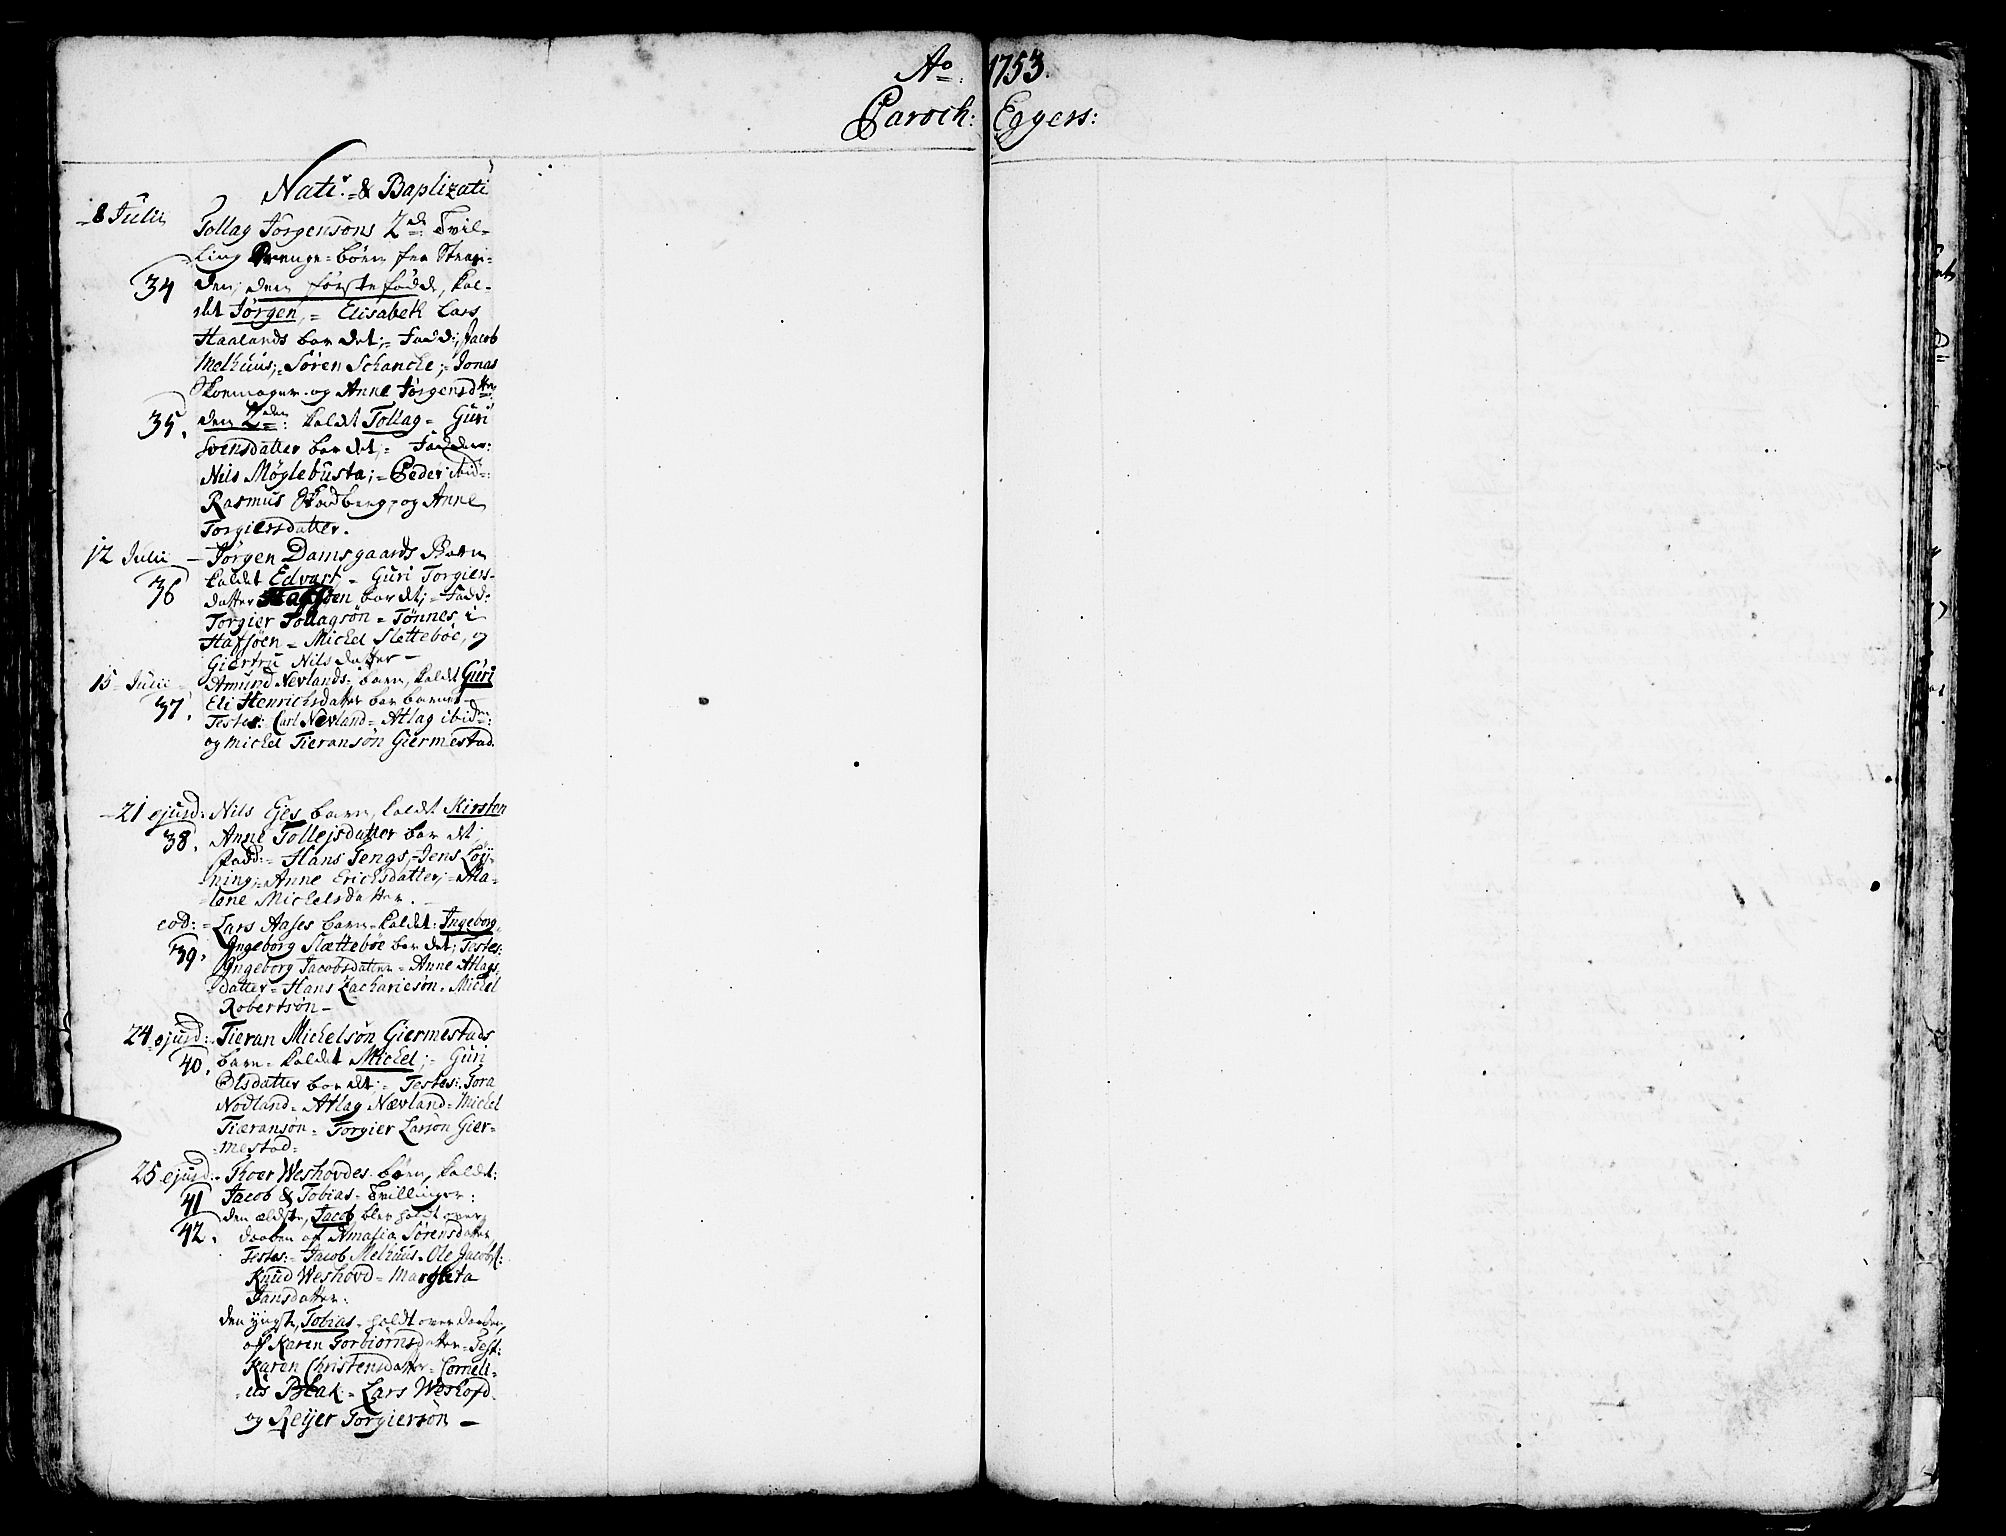 Ao: 1753.
Paroch: Eggers:
Nati & Baptizati
8 Julii Tollag Jörgensöns 2de Tvil-
ling Drenge-börn fra Stran-
34 den; den förstefödde, kal-
det Jörgen,= Elisabeth Lars
Haalands bar det;= Fadd:, Jacob
Melhuus;= Sören Schancke;= Jonas
Skoemager og Anne Jörgensdttr
35. den 2den: kaldt Tollag= Guri
Svensdatter bar det;= Faddere:
Nils Möglebusta;= Peder ibid:
Rasmus Skadberg, og Anne
Torgiersdatter.
12 Julii — Jörgen Damsgaards Barn
36 kaldet Edvart,= Guri Torgiers-
datter Hafsöen bar det;= Fadd:
Torgier Tollagsön= Tönnes i
Hafsöen= Michel Sletteböe, og
Giertru Nilsdatter —
15 Julii Amund Nevlands barn, kaldt Guri
37. Eli Henrichsdatter bar barnet
Testes: Carl Nevland= Atlag ibidem:
og Michel Tieransön Giermestad.
21 ejusd: Nils Ejes barn, kaldt Kirsten
38. Anne Tollejsdatter bar det;
Fadd:= Hans Tengs,= Jens Löy-
ning;= Anne Erichsdatter;= Ma-
lene Michelsdatter.
eod:= Lars Aases barn= kaldet: Ingeborg,
39. Ingeborg Sletteböe bar det; Testes:
Ingeborg Jacobsdatter= Anne Atlags
datter= Hans Zachariesön. Michel
Robertsön—
24 ejusd: Tieran Michelsön Giermestads
40. barn= kaldet Michel;= Guri
Olsdatter bar det;= Testes: Tora
Nodland= Atlag Nævland= Michel
Tiæransön= Torgier Larsön Gier-
mestad=
25 ejusd: Thoer Weshovdes börn, kaldt:
41 Jacob & Tobias= Tvillinger:
42. den ældste, Jacob blev holdt over
daaben af Amalia Sörensdatter,
Testes:= Jacob Melhuus= Ole Jacobs:
Knud Weshovd= Margreta
Jansdatter:
den yngste, Tobias= holdt over Daaben,
af Karen Torbiörnsdatter= Test:
Karen Christensdatter= Corneli-
us Blak= Lars Weshofd=
og Reijer Torgiersön —